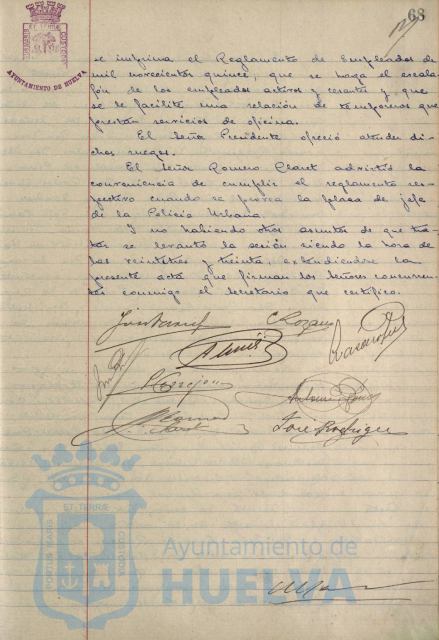 68
AYUNTAMIENTO DE HUELVA
se imprima el Reglamento de Empleados de
mil novecientos quince, que se haga el escala-
fón de los empleados activos y cesantes y que
se le facilite una relación de temporeros que
prestan servicios de oficina.
El Señor Presidente ofreció atender di-
chos ruegos.
El Señor Romero Claret advirtió la
conveniencia de cumplir el reglamento res-
pectivo cuando se provea la plaza de jefe
de la Policía Urbana.
Y no habiendo otros asuntos de que tra-
tar se levantó la sesión siendo la hora de
las veintitrés y treinta, extendiendose la
presente acta que firman los señores concurren-
tes conmigo el Secretario que certifico.
C Rozano
José Rodríguez
PORTUS MARIS ET TERRÆ CUSTODIA
Ayuntamiento de
HUELVA